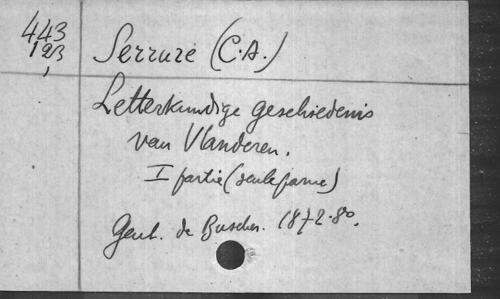 443
123
1
Serrure (C.A.)
Letterkundige geschiedenis
van Vlanderen.
I partie (seule parue)
Gent. de Busscher. 1872. 8º.